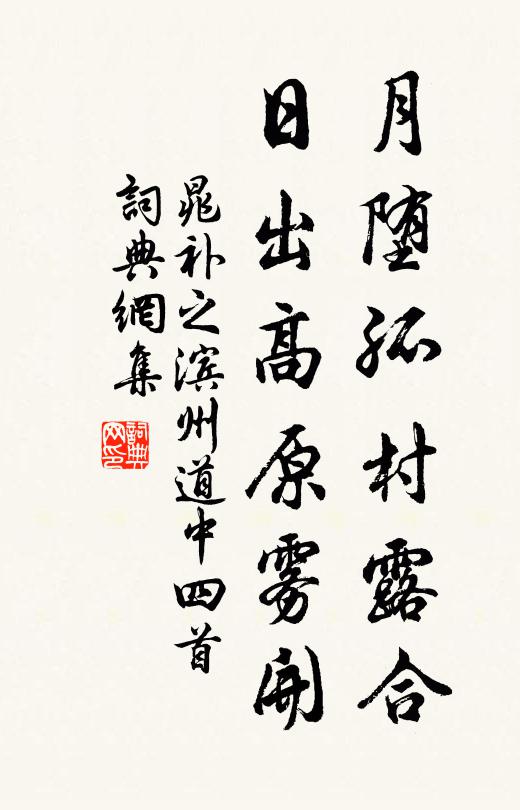 月堕孤村露合
日出高原雾開
晁补之滨州道中四首
詞典網集
詞典网印